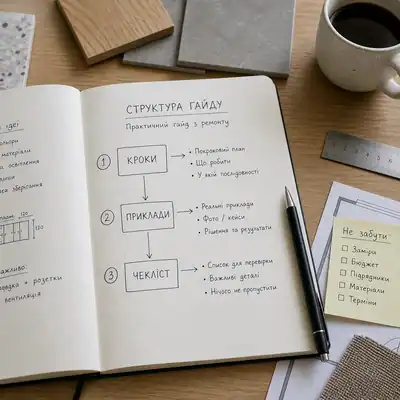 ідеї
матеріали
освітлення
зберігання
120
розетки
вентиляція
СТРУКТУРА ГАЙДУ
Практичний гайд з ремонту
1 КРОКИ
• Покроковий план
• Що робити
• У якій послідовності
2 ПРИКЛАДИ
• Реальні приклади
• Фото / кейси
• Рішення та результати
3 ЧЕКЛІСТ
• Список для перевірки
• Важливі деталі
• Нічого не пропустити
Не забути
Заміри
Бюджет
Підрядники
Матеріали
Терміни